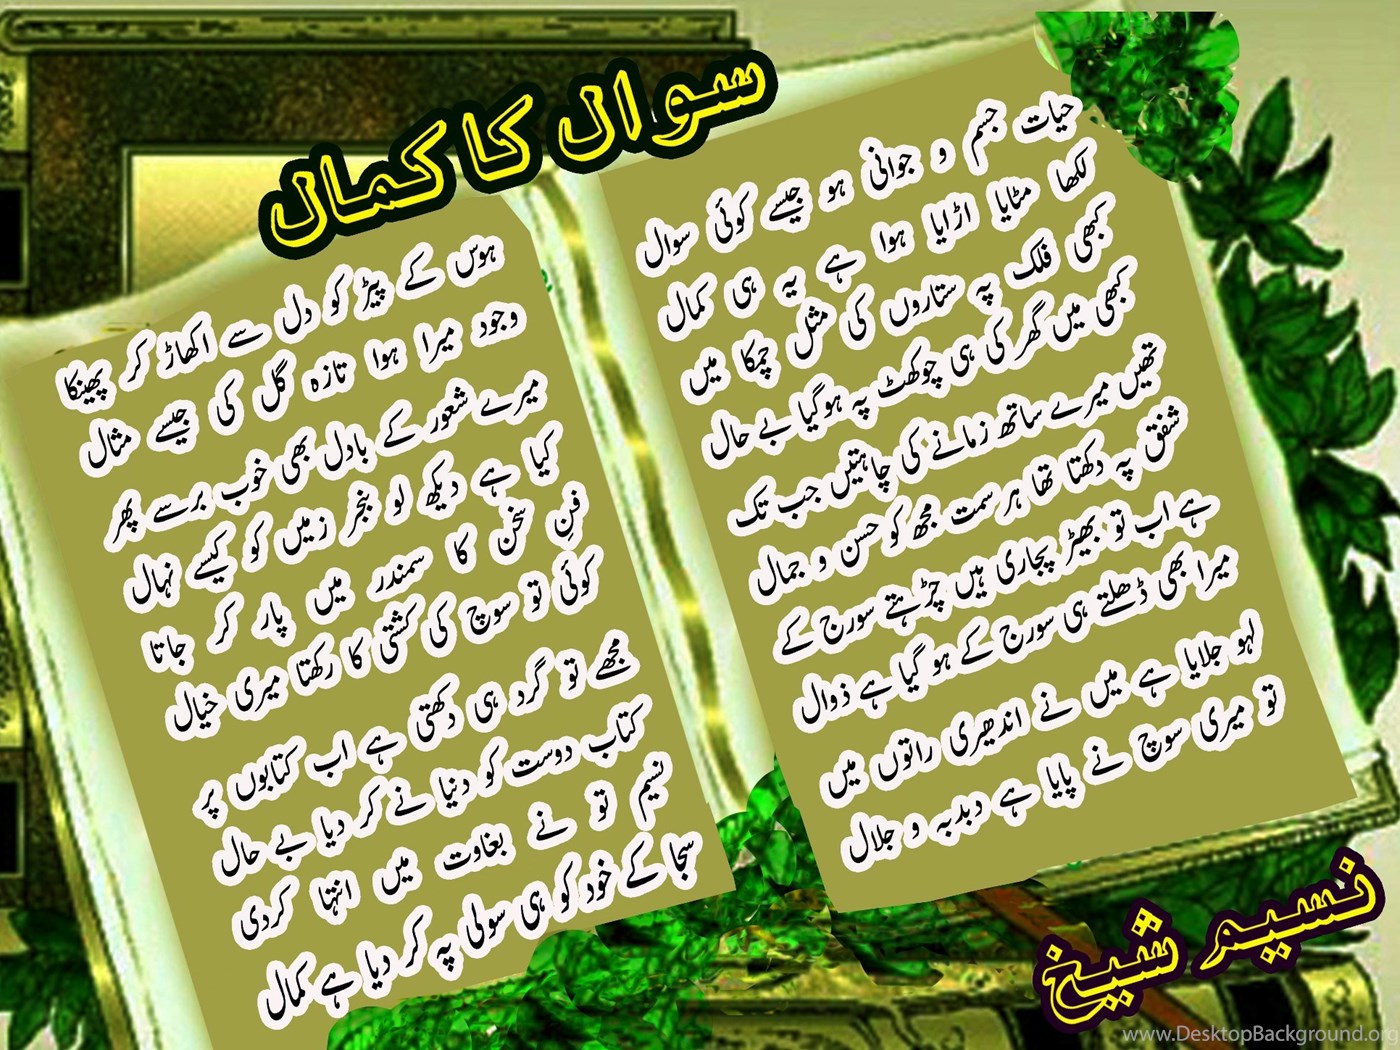 سوال کا کمال
حیات جسم و جوانی ہو جیسے کوئی سوال
لکھا مٹایا اڑایا ہوا ہے یہ ہی کمال
کبھی فلک پہ ستاروں کی مثل چمکا میں
کبھی میں گھر کی ہی چوکھٹ پہ ہوگیا بے حال
تھیں میرے ساتھ زمانے کی چاہتیں جب تک
شفق پہ دکھتا تھا ہر سمت مجھ کو حسن و جمال
ہے اب تو بھیڑ پجاری ہیں چڑہتے سورج کے
میرا بھی ڈھلتے ہی سورج کے ہو گیا ہے ذوال
لہو جلایا ہے میں نے اندھیری راتوں میں
تو میری سوچ نے پایا ہے دبدبہ و جلال
ہوس کے پیڑ کو دل سے اکھاڑ کر پھینکا
وجود میرا ہوا تازہ گل کی جیسے مثال
میرے شعور کے بادل بھی خوب برسے پھر
کیا ہے دیکھ لو بنجر زمیں کو کیسے نہال
فنِ سخن کا سمندر میں پار کر جاتا
کوئی تو سوچ کی کشتی کا رکھتا میری خیال
مجھے تو گرد ہی دکھتی ہے اب کتابوں پر
کتاب دوست کو دنیا نے کر دیا بے حال
نسیم تو نے بغاوت میں انتہا کردی
سجا کے خود کو ہی سولی پہ کر دیا ہے کمال
نسیم شیخ
www.DesktopBackground.org